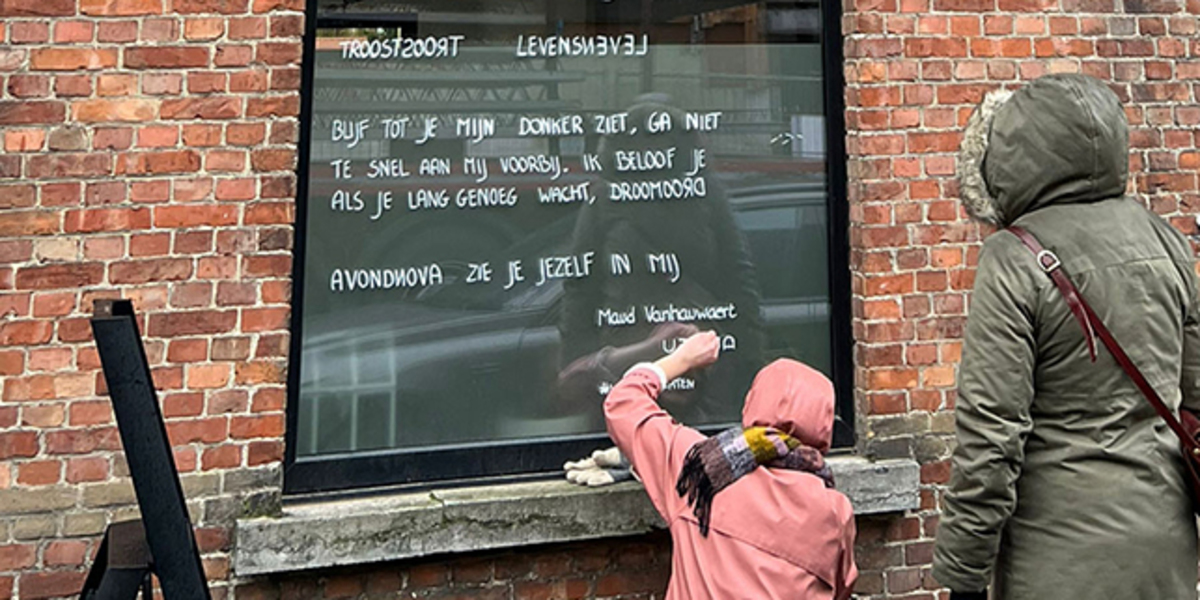 TROOSTSOORT LEVENSNEVEL
BLIJF TOT JE MIJN DONKER ZIET, GA NIET
TE SNEL AAN MIJ VOORBIJ. IK BELOOF JE
ALS JE LANG GENOEG WACHT, DROOMOORD
AVONDNOVA ZIE JE JEZELF IN MIJ
Maud Vanhauwaert